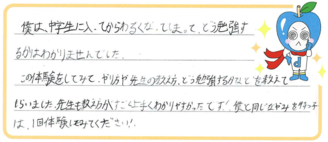 僕は、中学生に入ってからわるくなってしまって、どう勉強す
るかはわかりませんでした。
この体験をしてみて、やり方や先生の教え方、どう勉強するかなどを教えて
もらいました。先生も教え方がすごく上手くわかりやすかったです。僕と同じなやみをもつ子
は、1回体験してみてください!!